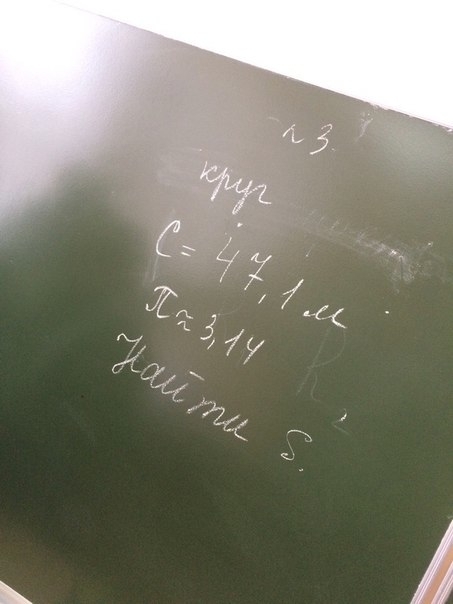 №3.
круг
C = 47,1 м
π ≈ 3,14
Найти S.